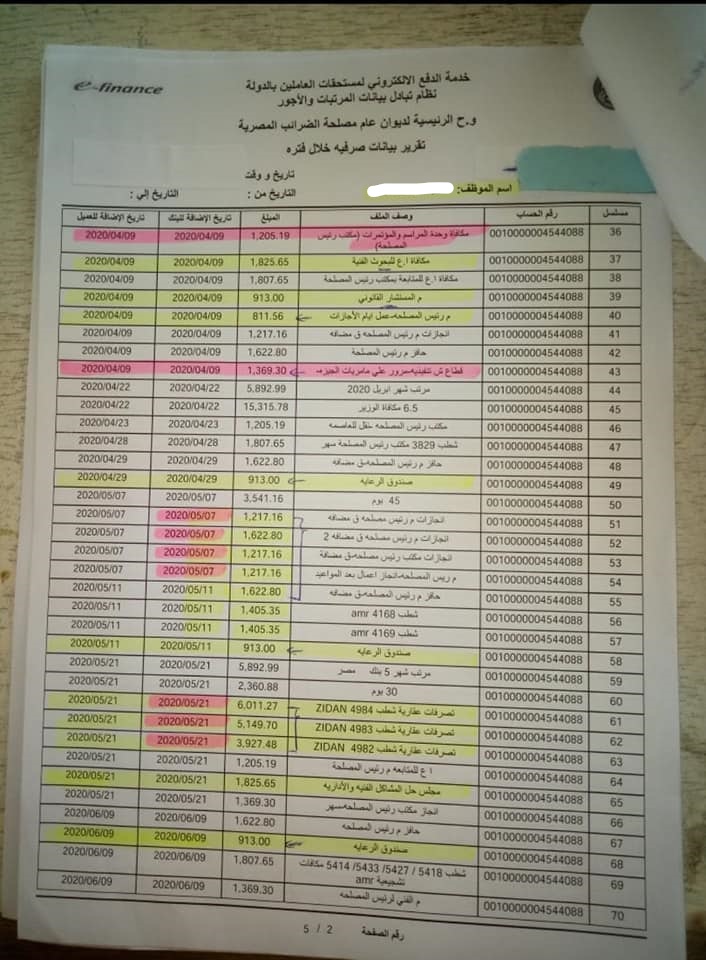 e-finance
خدمة الدفع الالكتروني لمستحقات العاملين بالدولة
نظام تبادل بيانات المرتبات والأجور
و.ح الرئيسية لديوان عام مصلحة الضرائب المصرية
تقرير بيانات صرفيه خلال فتره
تاريخ و وقت
اسم الموظف: التاريخ من : التاريخ إلي :
مسلسل رقم الحساب وصف الملف المبلغ تاريخ الإضافة للبنك تاريخ الإضافة للعميل
36 0010000004544088 مكافاة وحدة المراسم والمؤتمرات (مكتب رئيس 1,205.19 2020/04/09 2020/04/09
المصلحة)
37 0010000004544088 مكافاة ا.ع للبحوث الفنية 1,825.65 2020/04/09 2020/04/09
38 0010000004544088 مكافاة ا.ع للمتابعة بمكتب رئيس المصلحة 1,807.65 2020/04/09 2020/04/09
39 0010000004544088 م المستشار القانوني 913.00 2020/04/09 2020/04/09
40 0010000004544088 م رئيس المصلحه-عمل ايام الأجازات 811.56 2020/04/09 2020/04/09
41 0010000004544088 انجازات م رئيس المصلحه ق مضافه 1,217.16 2020/04/09 2020/04/09
42 0010000004544088 حافز م رئيس المصلحة 1,622.80 2020/04/09 2020/04/09
43 0010000004544088 قطاع ش تنفيذيه-مرور علي مامريات الجيزه- 1,369.30 2020/04/09 2020/04/09
44 0010000004544088 مرتب شهر ابريل 2020 5,892.99 2020/04/22 2020/04/22
45 0010000004544088 6.5 مكافاة الوزير 15,315.78 2020/04/22 2020/04/22
46 0010000004544088 مكتب رئيس المصلحه -نقل للعاصمه 1,205.19 2020/04/23 2020/04/23
47 0010000004544088 شطب 3829 مكتب رئيس المصلحة سهر 1,807.65 2020/04/28 2020/04/28
48 0010000004544088 حافز م رئيس المصلحه-ق مضافه 1,622.80 2020/04/29 2020/04/29
49 0010000004544088 صندوق الرعايه 913.00 2020/04/29 2020/04/29
50 0010000004544088 45 يوم 3,541.16 2020/05/07 2020/05/07
51 0010000004544088 انجازات م رئيس مصلحه ق مضافه 1,217.16 2020/05/07 2020/05/07
52 0010000004544088 انجازات م رئيس مصلحه ق مضافه 2 1,622.80 2020/05/07 2020/05/07
53 0010000004544088 انجازات مكتب رئيس مصلحه-ق مضافة 1,217.16 2020/05/07 2020/05/07
54 0010000004544088 م ريس المصلحه-انجاز اعمال بعد المواعيد 1,217.16 2020/05/07 2020/05/07
55 0010000004544088 حافز م رئيس المصلحه-ق مضافه 1,622.80 2020/05/11 2020/05/11
56 0010000004544088 شطب 4168 amr 1,405.35 2020/05/11 2020/05/11
57 0010000004544088 شطب 4169 amr 1,405.35 2020/05/11 2020/05/11
58 0010000004544088 صندوق الرعايه 913.00 2020/05/11 2020/05/11
59 0010000004544088 مرتب شهر 5 بنك مصر 5,892.99 2020/05/21 2020/05/21
60 0010000004544088 30 يوم 2,360.88 2020/05/21 2020/05/21
61 0010000004544088 تصرفات عقارية شطب 4984 ZIDAN 6,011.27 2020/05/21 2020/05/21
62 0010000004544088 تصرفات عقارية شطب 4983 ZIDAN 5,149.70 2020/05/21 2020/05/21
63 0010000004544088 تصرفات عقارية شطب 4982 ZIDAN 3,927.48 2020/05/21 2020/05/21
64 0010000004544088 ا ع للمتابعه م رئيس المصلحة 1,205.19 2020/05/21 2020/05/21
65 0010000004544088 مجلس حل المشاكل الفنيه والأداريه 1,825.65 2020/05/21 2020/05/21
66 0010000004544088 انجاز مكتب رئيس المصلحه-سهر 1,369.30 2020/05/21 2020/05/21
67 0010000004544088 حافز م رئيس المصلحه 1,622.80 2020/06/09 2020/06/09
68 0010000004544088 صندوق الرعايه 913.00 2020/06/09 2020/06/09
69 0010000004544088 شطب 5418 / 5427/ 5433/ 5414 مكافات 1,807.65 2020/06/09 2020/06/09
تشجيعية amr
70 0010000004544088 م الفني لرئيس المصلحه 1,369.30 2020/06/09 2020/06/09
رقم الصفحة 2 / 5